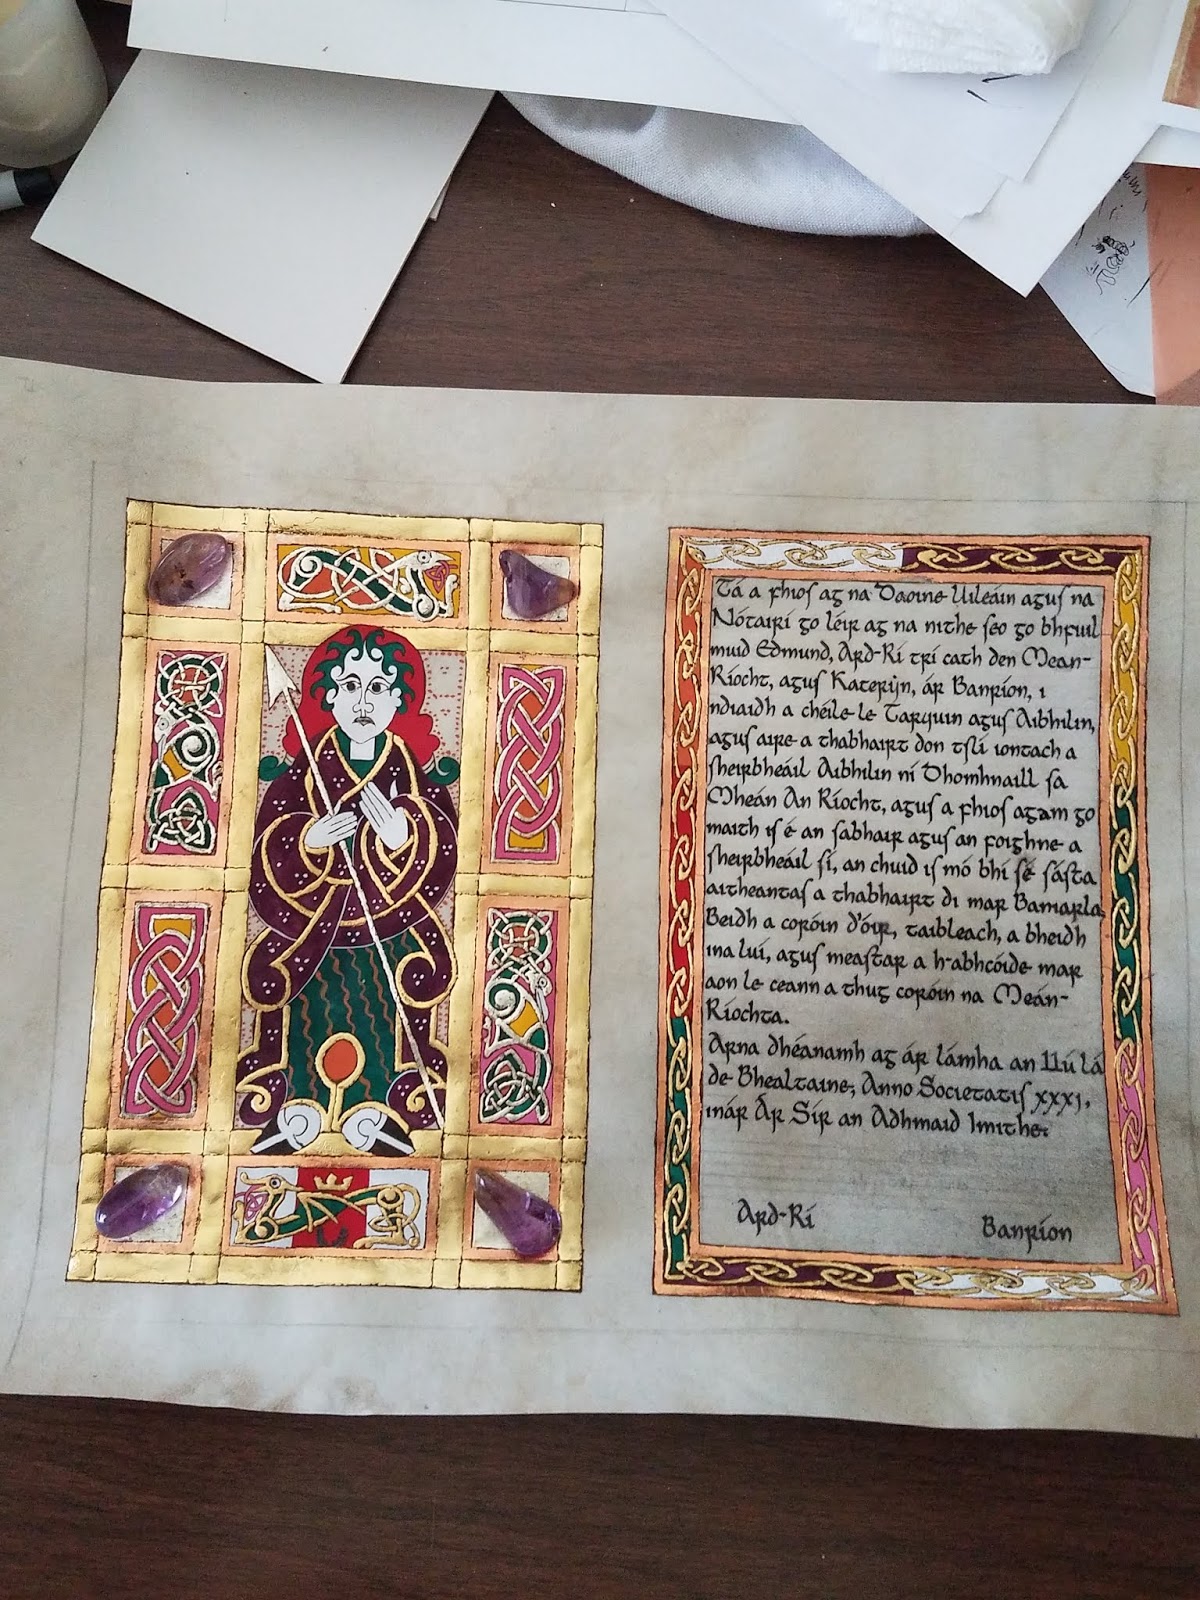 Tá a fhios ag na Daoine Uileáin agus na
Nótairí go léir ag na nithe seo go bhfuil
muid Edmund, Ard-Rí trí cath den Mean-
Ríocht, agus Katerijn, ár Banríon, i
ndiaidh a chéile le Tarquin agus Aibhilin,
agus aire a thabhairt don tslí iontach a
sheirbheáil Aibhilin ní Dhomhnaill sa
Mheán An Ríocht, agus a fhios agam go
maith is é an sabhair agus an foighne a
sheirbheáil sí, an chuid is mó bhí sé sásta
aitheantas a thabhairt di mar Baniarla.
Beidh a coróin d'óir, taibleach, a bheidh
ina luí, agus meastar a h-abhcóide mar
aon le ceann a thug coróin na Meán-
Ríochta.
Arna dhéanamh ag ár lámha an 11ú lá
de Bhealtaine, Anno Societatis xxxi,
inár Ár Sír an Adhmaid Imithe.
Ard-Rí
Banríon